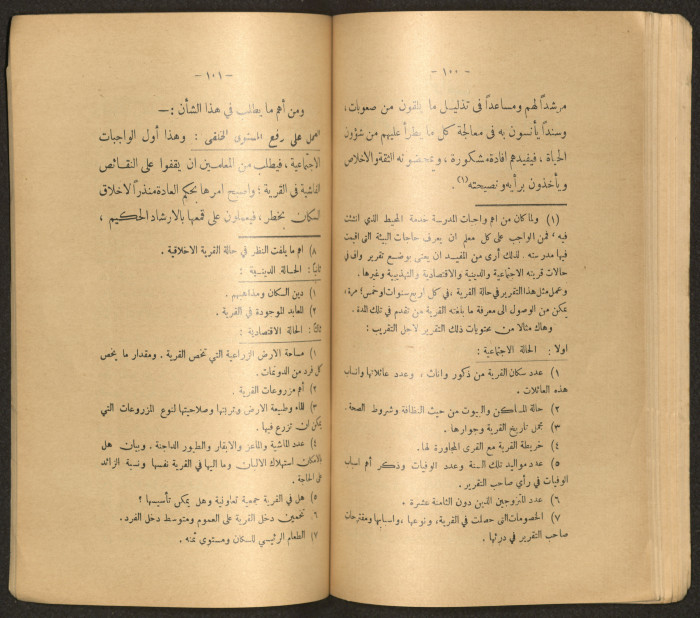 — ١٠٠ —
مرشداً لهم ومساعداً فى تذليل ما يلقون من صعوبات،
وسنداً يأنسون به فى معالجة كل ما يطرأ عليهم من شؤون
الحياة ، فيفيدهم افادة مشكورة ، ويمحضونه الثقة والاخلاص
ويأخذون برأيه ونصيحته (١).
(١) ولما كان من اهم واجبات المدرسة خدمة المحيط الذي انشئت
فيه ، فمن الواجب على كل معلم ان يعرف حاجات البيئة التى اقيمت
فيها مدرسته . لذلك أرى من المفيد ان يعنى بوضع تقرير واف في
حالات قريته الاجتماعية والدينية والاقتصادية والتهذيبية وغيرها .
وعمل مثل هذا التقرير في حالة القرية ، في كل اربع سنوات او خمس مرة،
يمكن من الوصول الى معرفة ما بلغته القرية من تقدم في تلك المدة .
وهاك مثالا من محتويات ذلك التقرير لاجل التقريب :
اولا : الحالة الاجتماعية :
١) عدد سكان القرية من ذكور واناث ، وعدد عائلاتها وانساب
هذه العائلات .
٢) حالة المساكن والبيوت من حيث النظافة وشروط الصحة.
٣) مجمل تاريخ القرية وجوارها .
٤) خريطة القرية مع القرى المجاورة لها.
٥) عدد مواليد تلك السنة وعدد الوفيات وذكر أهم اسباب
الوفيات في رأي صاحب التقرير .
٦) عدد المتزوجين الذين دون الثامنة عشرة .
٧) الخصومات التى حصلت في القرية، ونوعها ، واسبابها ومقترحات
صاحب التقرير في درئها .
— ١٠١ —
ومن أهم ما يطلب في هذا الشأن : —
العمل على رفع المستوى الخلقى : وهذا أول الواجبات
الاجتماعية ، فيطلب من المعلمين ان يقفوا على النقائص
الفاشية في القرية ؛ واصبح امرها بحكم العادة منذراً لاخلاق
السكان بخطر ، فيعملون على قمعها بالارشاد الحكيم ،
٨) اهم ما يلفت النظر في حالة القرية الاخلاقية .
ثانياً : الحالة الدينية :
١) دين السكان ومذاهبهم .
٢) المعابد الموجودة في القرية .
ثالثاً : الحالة الاقتصادية :
١) مساحة الارض الزراعية التي تخص القرية . ومقدار ما يخص
كل فرد من الدونمات .
٢) أهم مزروعات القرية .
٣) الماء وطبيعة الارض وتربتها وصلاحيتها لنوع المزروعات التي
يمكن ان تزرع فيها .
٤) عدد الماشية والماعز والابقار والطيور الداجنة . وبيان هل
بالامكان استهلاك الالبان وما اليها في القرية نفسها ونسبة الزائد
على الحاجة .
٥) هل في القرية جمعية تعاونية وهل يمكن تأسيسها ؟
٦. تخمين دخل القرية على العموم ومتوسط دخل الفرد.
٧) الطعام الرئيسي للسكان ومستوى ثمنه .